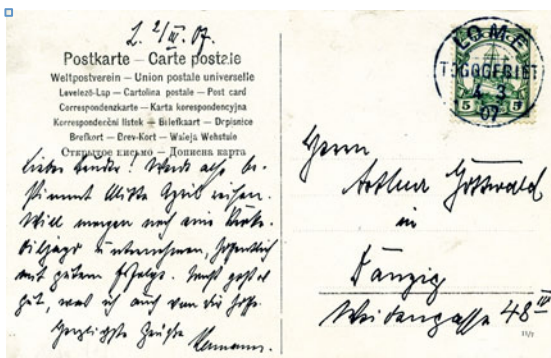 L. 2/III. 07.
Postkarte — Carte postale
Weltpostverein — Union postale universelle
Levelező-Lap — Cartolina postale — Post card
Correspondenzkarte — Karta korespondencyjna
Korrespondeční lístek — Briefkaart — Drpisnice
Brefkort — Brev-Kort — Waleja Wehstule
Открытое письмо — Дописна карта
Lieber Bruder! Werde also be-
stimmt Mitte April reisen.
Will morgen noch eine Kroko-
diljagd unternehmen, hoffentlich
mit gutem Erfolge. Sonst geht es
gut, was ich auch von dir hoffe.
Herzlichste Grüße Hermann.
LOME
TOGOGEBIET
4 3
07
5 5
Herrn
Arthur Gottwald
in
Danzig
Weidengasse 48 IV